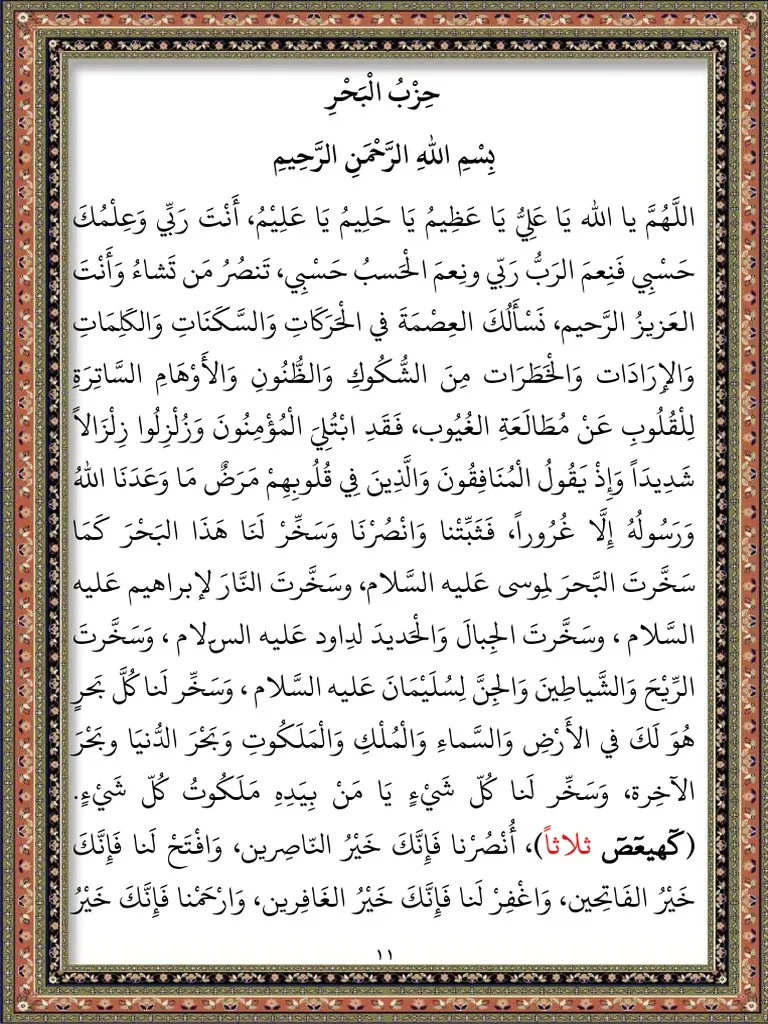 حِزْبُ الْبَحْرِ
بِسْمِ اللهِ الرَّحْمَنِ الرَّحِيمِ
اللَّهُمَّ يا الله يَا عَلِيُّ يَا عَظِيمُ يَا حَلِيمُ يَا عَلِيْمُ، أَنْتَ رَبِّي وَعِلْمُكَ
حَسْبِي فَنِعمَ الرَبُّ رَبّي ونِعمَ الحَسبُ حَسْبِي، تَنصُرُ مَن تَشاءُ وَأَنْتَ
العَزيزُ الرَّحيم، نَسْأَلُكَ العِصْمَةَ في الْحَرَكَاتِ وَالسَّكَنَاتِ وَالكَلِمَاتِ
وَالإِرَادَات وَالْخَطَرَات مِنَ الشُّكُوكِ وَالظُّنُونِ وَالأَوْهَامِ السَّاتِرَةِ
لِلْقُلُوبِ عَنْ مُطَالَعَةِ الغُيُوب، فَقَدِ ابْتُلِيَ الْمُؤْمِنُونَ وَزُلْزِلُوا زِلْزَالاً
شَدِيدَاً وَإِذْ يَقُولُ الْمُنَافِقُونَ وَالَّذِينَ فِي قُلُوبِهِمْ مَرَضٌ مَا وَعَدَنَا اللهُ
وَرَسُولُهُ إِلَّا غُرُوراً، فَثَبِّتْنا وَانْصُرْنَا وَسَخِّرْ لَنَا هَذَا البَحْرَ كَمَا
سَخَّرتَ البَّحرَ لِموسى عَليه السَّلام، وسَخَّرتَ النَّارَ لإبراهيم عَليه
السَّلام ، وسَخَّرتَ الجِبالَ وَالْحَديدَ لدِاود عَليه السلام ، وَسَخَّرتَ
الرِّيْحَ وَالشَّياطِينَ وَالجِنَّ لِسُلَيْمَانَ عَليه السَّلام ، وَسَخِّر لَنا كُلَّ بَحرٍ
هُوَ لَكَ في الأَرْضِ وَالسَّماءِ وَالْمُلْكِ وَالْمَلَكُوتِ وَبَحْرَ الدُّنيَا وبَحْرَ
الآخِرة، وَسَخِّر لَنا كُلّ شَيْءٍ يَا مَنْ بِيَدِهِ مَلَكُوتُ كُلّ شَيْءٍ.
(كٓهيعٓصٓ ثلاثاً)، أُنْصُرْنا فَإِنَّكَ خَيْرُ النّاصِرين، وَافْتَحْ لَنا فَإِنَّكَ
خَيْرُ الفَاتِحِين، وَاغْفِرْ لَنا فَإِنَّكَ خَيْرُ الغَافِرين، وَارْحَمْنا فَإِنَّكَ خَيْرُ
١١